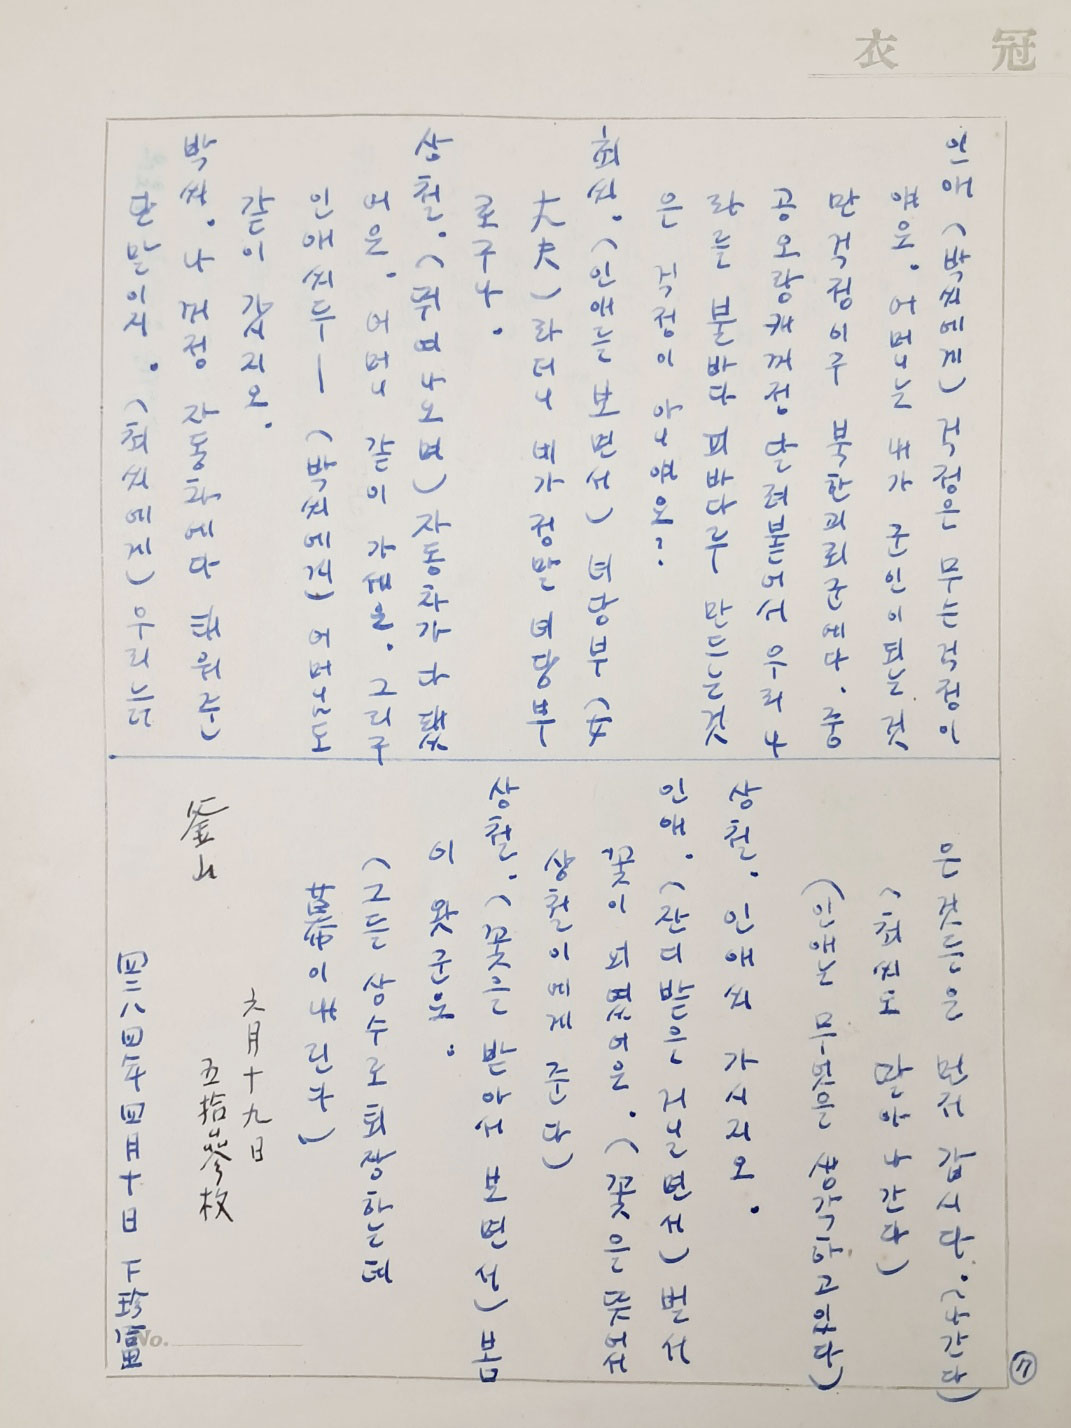 衣冠
인애 (박씨에게) 걱정은 무슨걱정이
얘요. 어머니는 내가 군인이되는 것
만 걱정이구 북한괴뢰군에다. 중
공오랑캐꺼정 달려붙어서 우리나
라를 불바다 피바다루 만드는것
은 걱정이 아니얘요?
최씨. (인애를 보면서) 녀당부 (女
大夫) 라더니 네가 정말 녀당부
로구나.
상철. (뛰여나오며) 자동차가 다 됐
어요. 어머니 같이 가세요. 그리구
인애씨두— (박씨에게) 어머님도
같이 갑시지오.
박씨. 나꺼정 자동차에다 태워준
단말이지. (최씨에게) 우리 늙
은것들은 먼저 갑시다. (나간다)
(최씨도 딸아 나간다)
(인애는 무엇을 생각하고있다)
상철. 인애씨 가시지오.
인애. (잔디밭을 거닐면서) 벌서
꽃이 피였어요. (꽃을 뜻어서
상철이에게 준다)
상철. (꽃을 받아서 보면서) 봄
이 왓군요.
(그들 상수로 퇴장하는데
幕이내린다)
六月十九日
五拾參枚
釜山
四二八四年四月十日 下珍富
No.
17